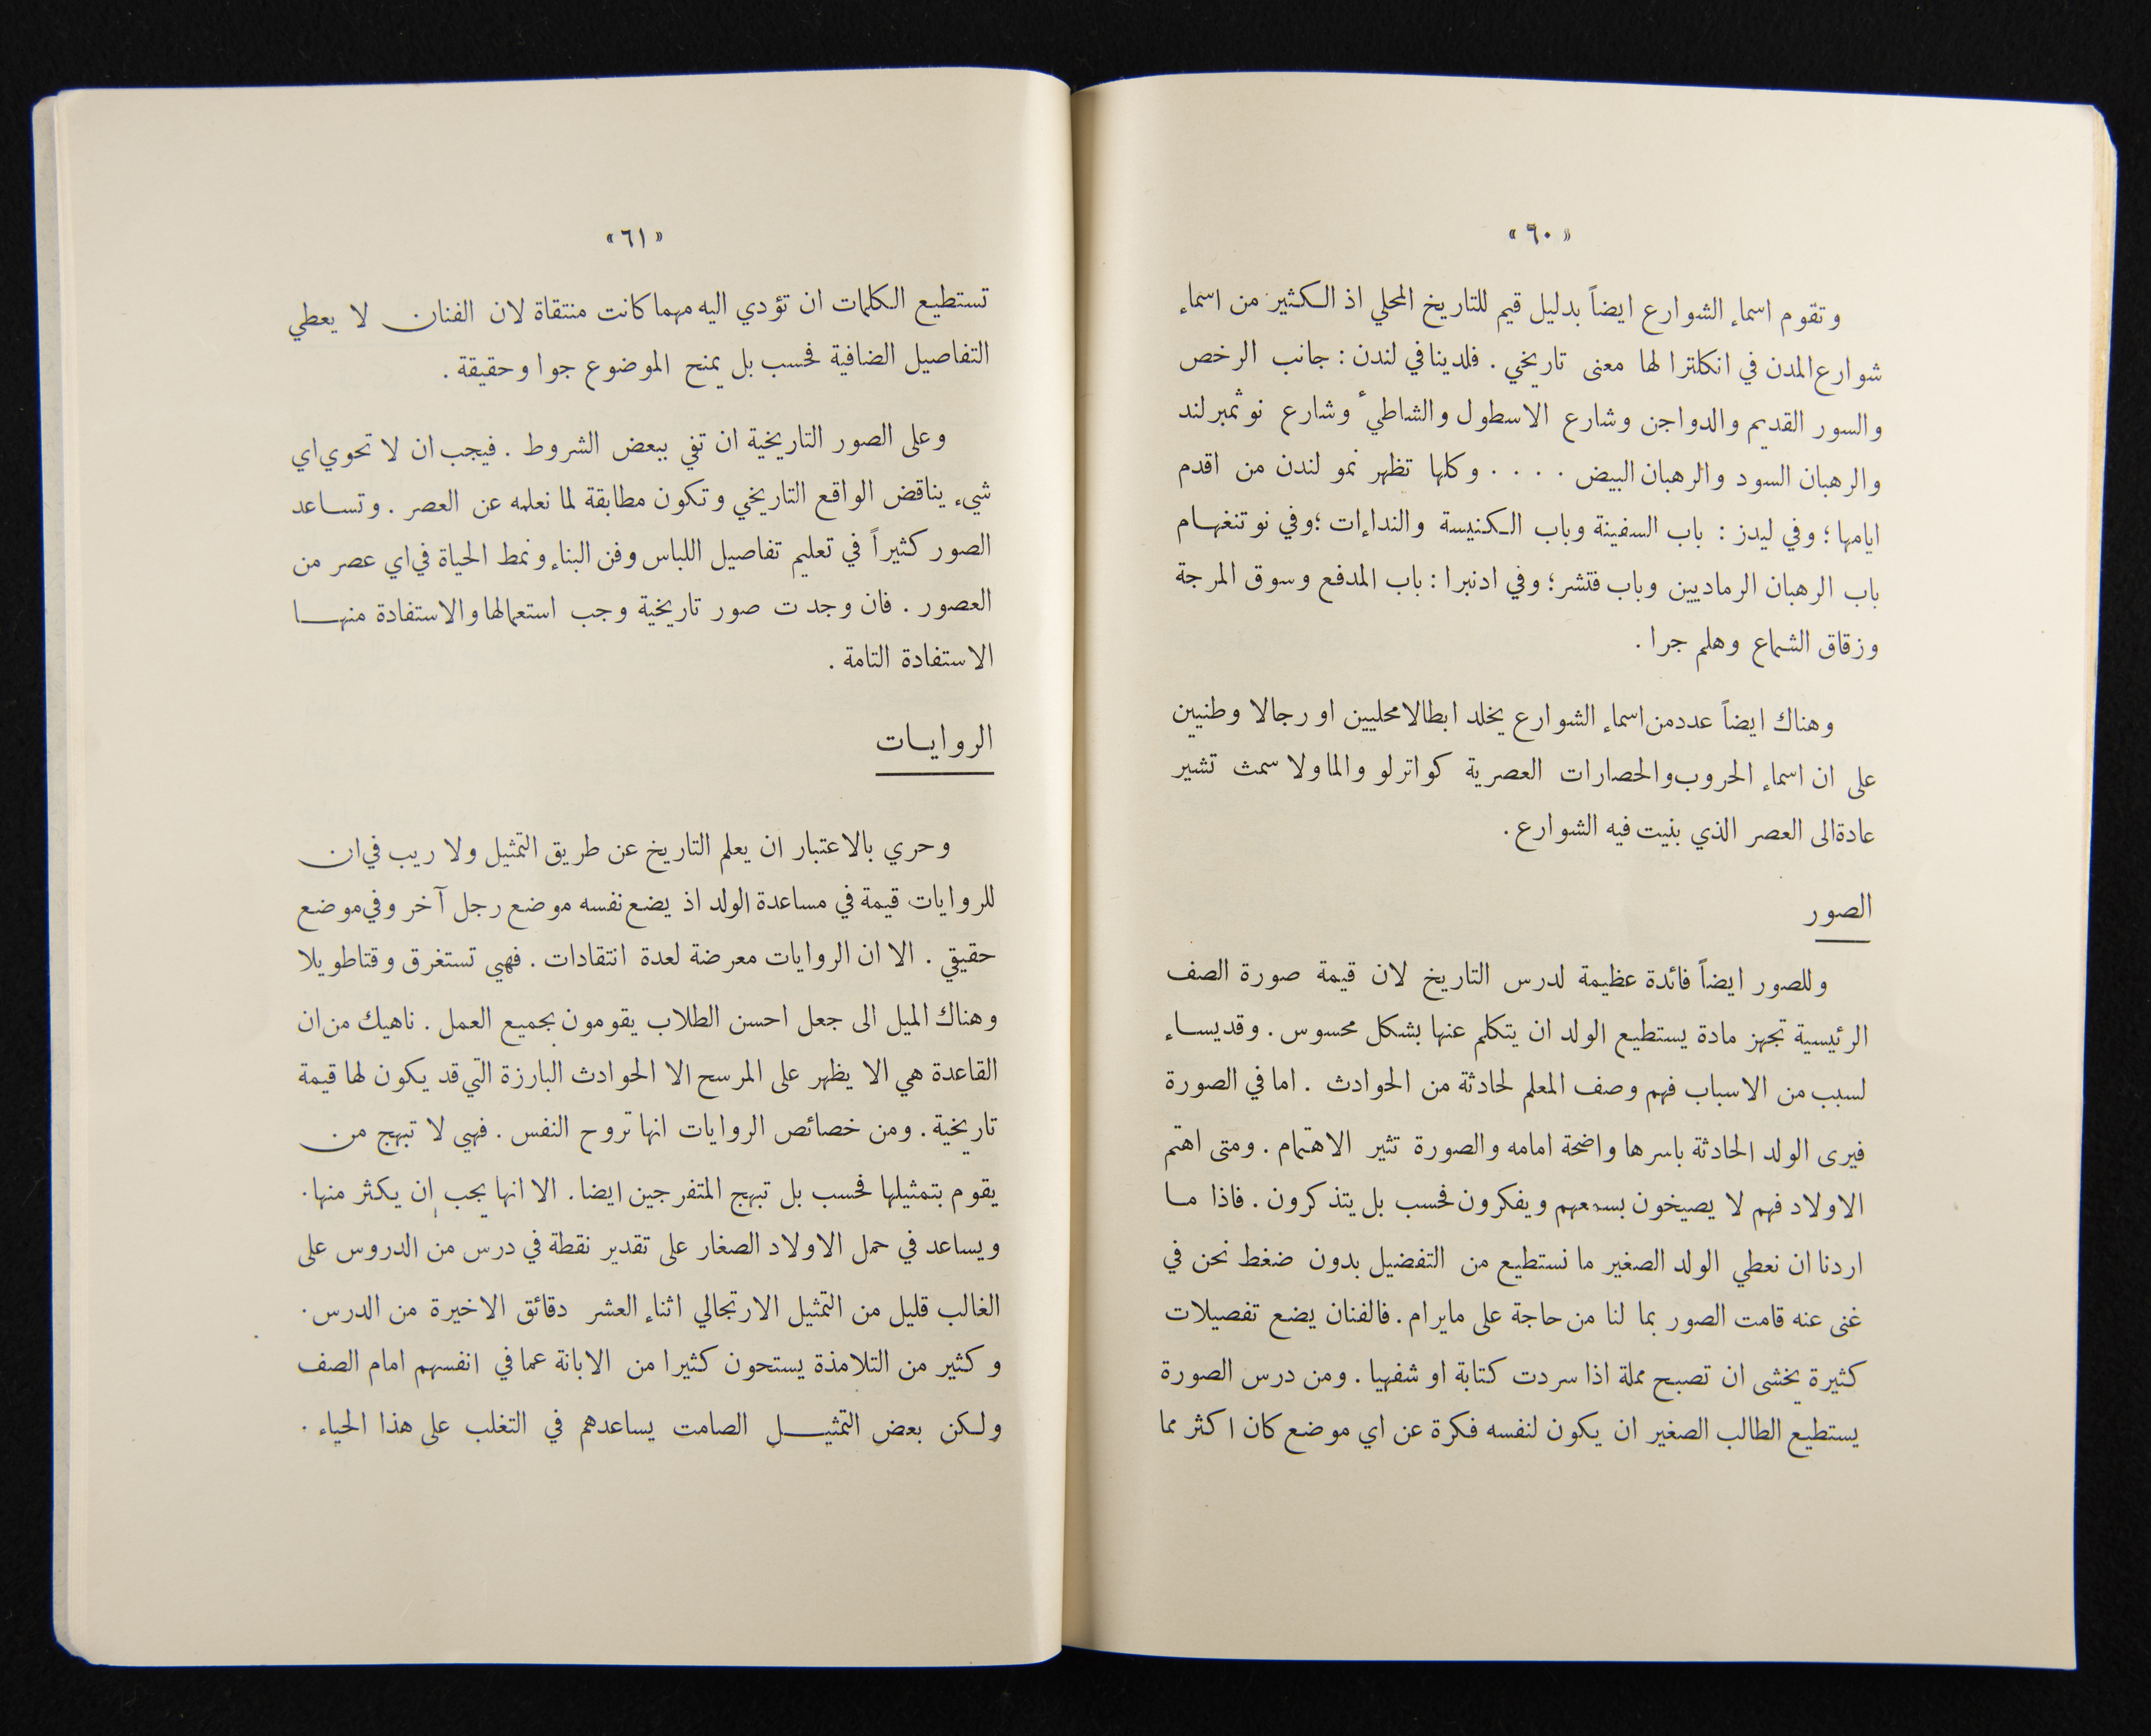 « ٦٠ »
وتقوم اسماء الشوارع ايضاً بدليل قيم للتاريخ المحلي اذ الكثير من اسماء
شوارع المدن في انكلترا لها معنى تاريخي . فلدينا في لندن : جانب الرخص
والسور القديم والدواجن وشارع الاسطول والشاطيء وشارع نوثمبرلند
والرهبان السود والرهبان البيض . . . . وكلها تظهر نمو لندن من اقدم
ايامها ؛ وفي ليدز : باب السفينة وباب الكنيسة والنداءات ؛ وفي نوتنغهام
باب الرهبان الرماديين وباب فتشر ؛ وفي ادنبرا : باب المدفع وسوق المرجة
وزقاق الشماع وهلم جرا .
وهناك ايضاً عدد من اسماء الشوارع يخلد ابطالا محليين او رجالا وطنيين
على ان اسماء الحروب والحصارات العصرية كواترلو والما ولا سمث تشير
عادة الى العصر الذي بنيت فيه الشوارع .
الصور
وللصور ايضاً فائدة عظيمة لدرس التاريخ لان قيمة صورة الصف
الرئيسية تجهز مادة يستطيع الولد ان يتكلم عنها بشكل محسوس . وقد يساء
لسبب من الاسباب فهم وصف المعلم لحادثة من الحوادث . اما في الصورة
فيرى الولد الحادثة باسرها واضحة امامه والصورة تثير الاهتمام . ومتى اهتم
الاولاد فهم لا يصيخون بسمعهم ويفكرون فحسب بل يتذكرون . فاذا ما
اردنا ان نعطي الولد الصغير ما نستطيع من التفضيل بدون ضغط نحن في
غنى عنه قامت الصور بما لنا من حاجة على مايرام . فالفنان يضع تفصيلات
كثيرة يخشى ان تصبح مملة اذا سردت كتابة او شفهيا . ومن درس الصورة
يستطيع الطالب الصغير ان يكون لنفسه فكرة عن اي موضع كان اكثر مما
« ٦١ »
تستطيع الكلمات ان تؤدي اليه مهما كانت منتقاة لان الفنان لا يعطي
التفاصيل الضافية فحسب بل يمنح الموضوع جوا وحقيقة .
وعلى الصور التاريخية ان تفي ببعض الشروط . فيجب ان لا تحوي اي
شيء يناقض الواقع التاريخي وتكون مطابقة لما نعلمه عن العصر . وتساعد
الصور كثيراً في تعليم تفاصيل اللباس وفن البناء ونمط الحياة في اي عصر من
العصور . فان وجدت صور تاريخية وجب استعمالها والاستفادة منها
الاستفادة التامة .
الروايات
وحري بالاعتبار ان يعلم التاريخ عن طريق التمثيل ولا ريب في ان
للروايات قيمة في مساعدة الولد اذ يضع نفسه موضع رجل آخر وفي موضع
حقيقي . الا ان الروايات معرضة لعدة انتقادات . فهي تستغرق وقتا طويلا
وهناك الميل الى جعل احسن الطلاب يقومون بجميع العمل . ناهيك من ان
القاعدة هي الا يظهر على المرسح الا الحوادث البارزة التي قد يكون لها قيمة
تاريخية . ومن خصائص الروايات انها تروح النفس . فهي لا تبهج من
يقوم بتمثيلها فحسب بل تبهج المتفرجين ايضا . الا انها يجب ان يكثر منها .
ويساعد في حمل الاولاد الصغار على تقدير نقطة في درس من الدروس على
الغالب قليل من التمثيل الارتجالي اثناء العشر دقائق الاخيرة من الدرس .
وكثير من التلامذة يستحون كثيرا من الابانة عما في انفسهم امام الصف
ولكن بعض التمثيل الصامت يساعدهم في التغلب على هذا الحياء .